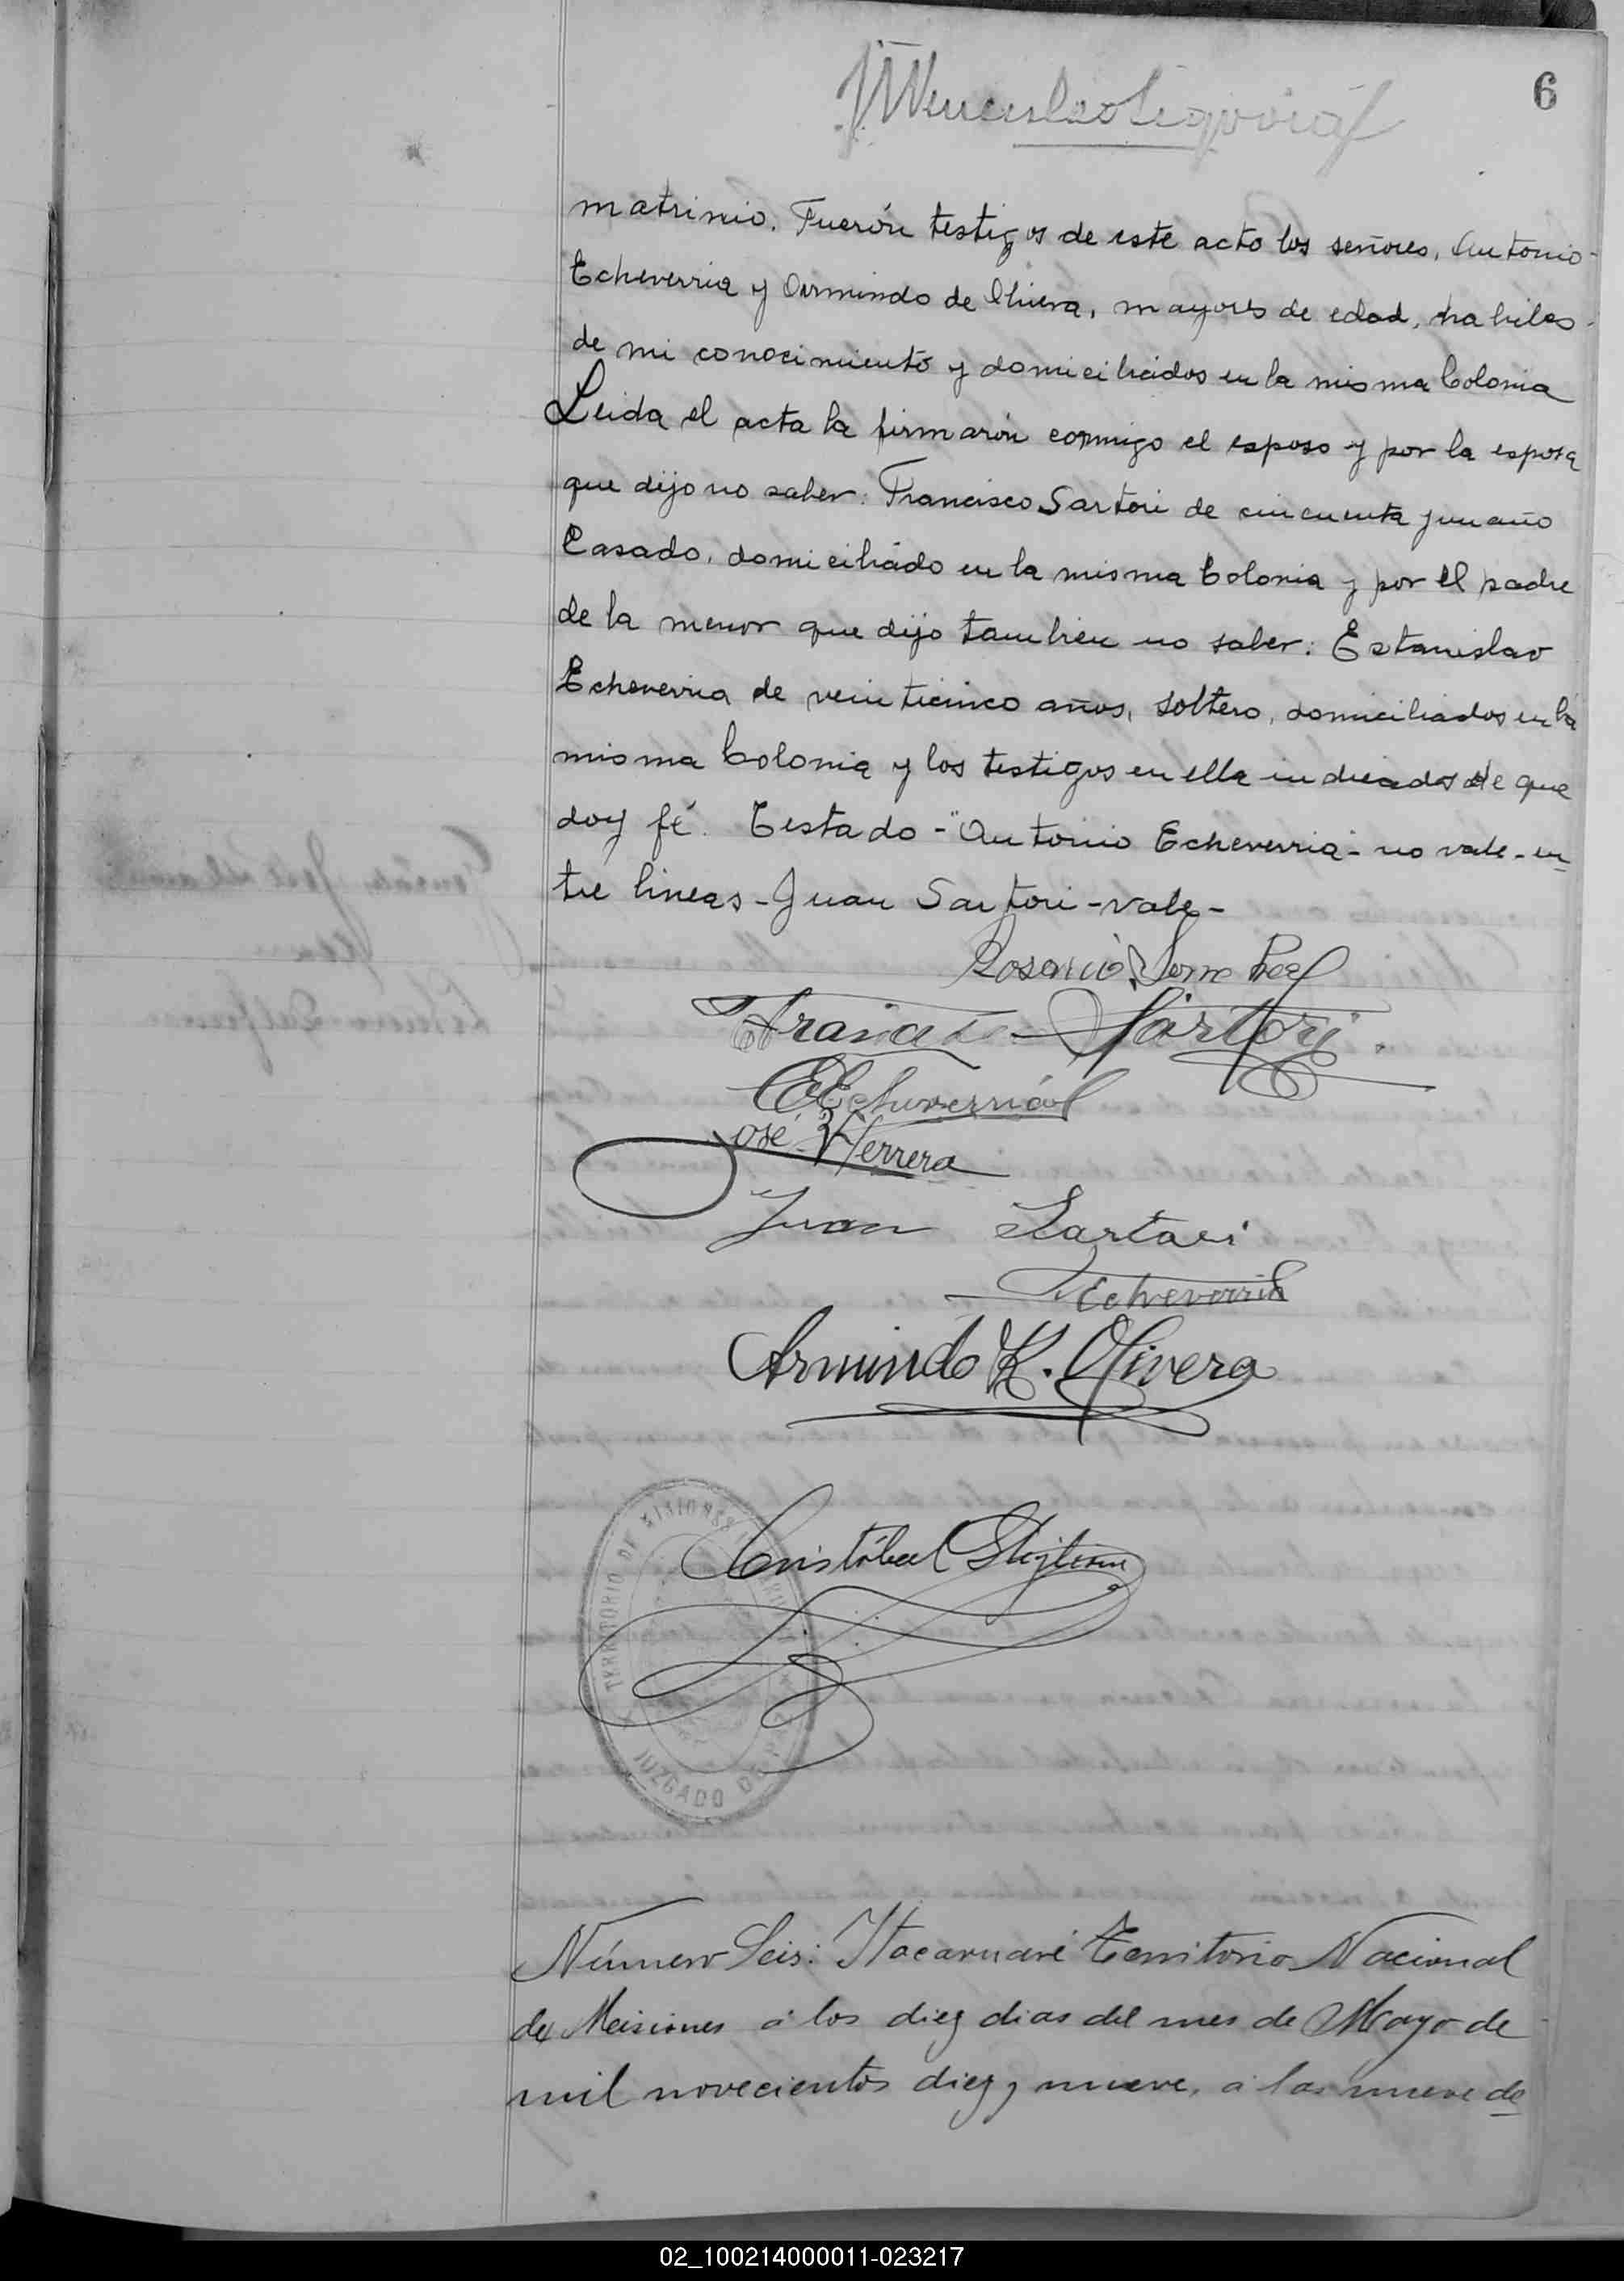 6
matrinio. Fuerón testigos de este acto los señores, Antonio
Echeverria y Armindo de Olivera, mayores de edad, habiles
de mi conocimiento y domiciliados en la misma Colonia
Leida el acta la firmarón conmigo el esposo y por la esposa
que dijo no saber: Francisco Sartori de cincuenta y un año
Casado, domiciliado en la misma Colonia y por el padre
de la menor que dijo tambien no saber: Estanislao
Echeverria de veinticinco años, soltero, domiciliados en la
misma Colonia y los testigos en ella indicados de que
doy fé. Testado - "Antonio Echeverria - no vale - en
tre lineas - Juan Sartori - vale -
Rosario
Sartori
EEcheverria
José Herrera
Juan Sartori
Echeverria
Armindo K. Olivera
Cristóbal
TERRITORIO DE MISIONES
JUZGADO DE PAZ
Número Seis: Itacaruaré Territorio Nacional
de Misiones á los diez dias del mes de Mayo de
mil novecientos diez y nueve, á las nueve de
02_100214000011-023217